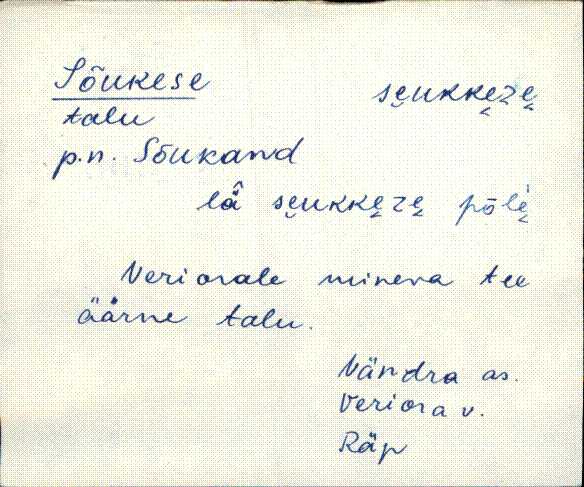 Sõukese se̮ukke̮ze̮
talu
p.n. Sõukand
lä̂ se̮ukke̮ze̮ põlè̮
Veriorale mineva tee
äärne talu.
Nändra as.
Veriora v.
Räp